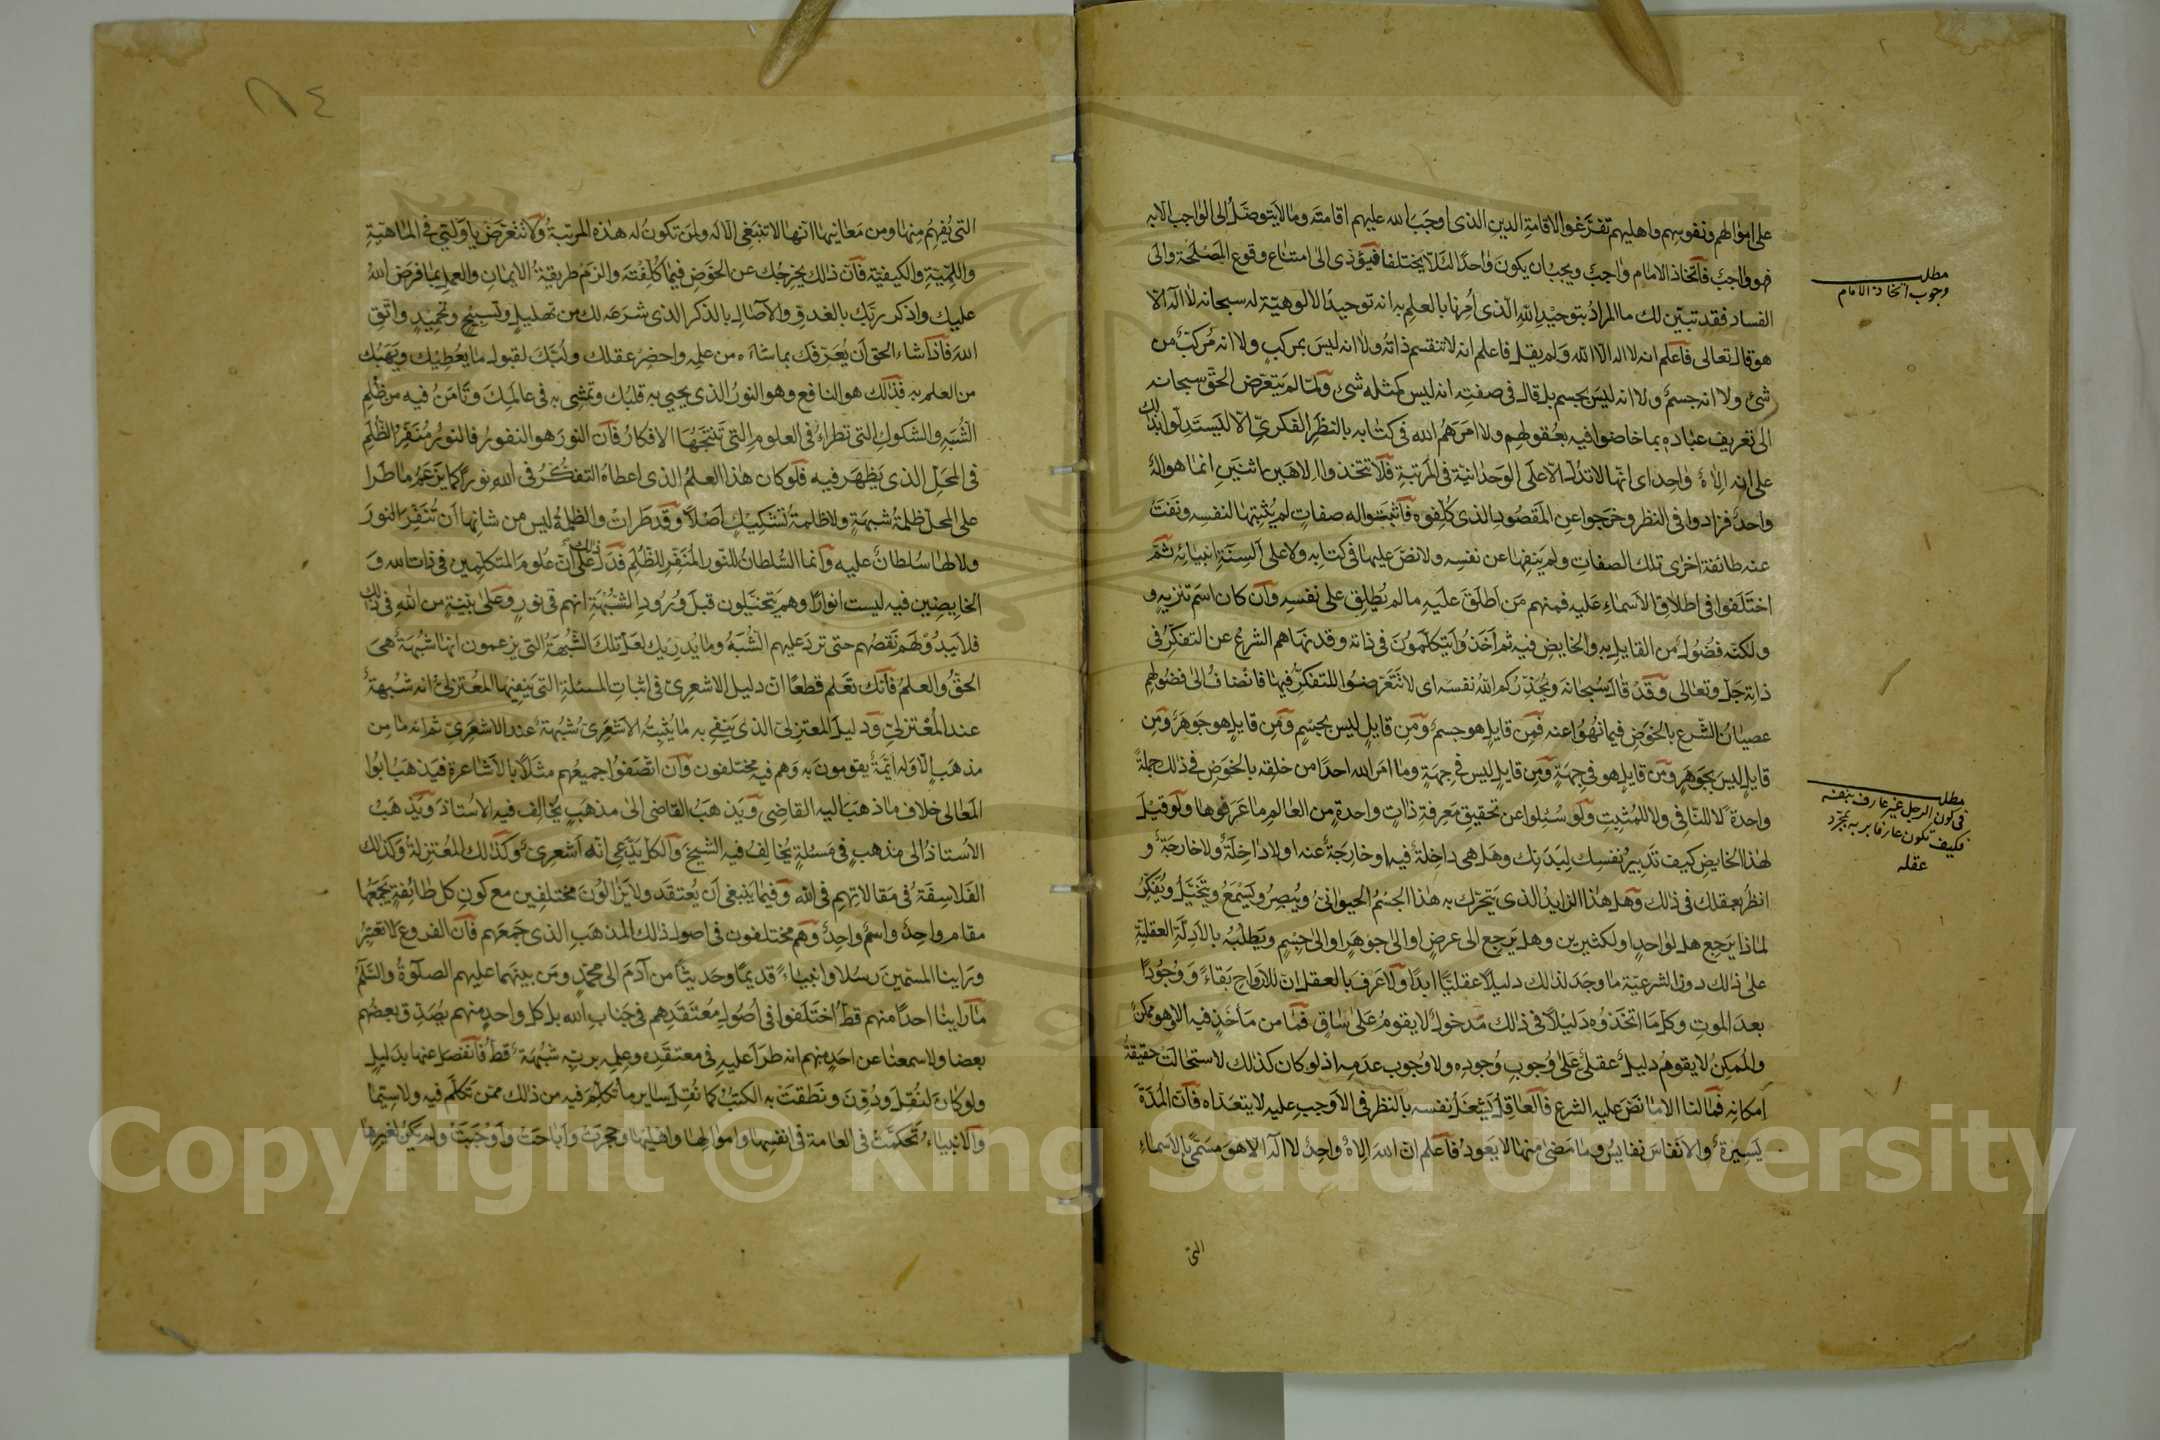 على اموالهم ونفوسهم واهليهم تفرغوا لاقامة الدين الذى اوجب الله عليهم اقامته وما لا يتوصل الى الواجب الا به
فهو واجب فاتخاذ الامام واجب ويجب ان يكون واحدا لئلا يختلفا فيؤدى الى امتناع وقوع المصلحة والى
الفساد فقد تبين لك ما المراد بتوحيد الله الذى امرنا بالعلم به انه توحيد الالوهية له سبحانه لا اله الا
هو قال تعالى فاعلم انه لا اله الا الله ولم يقل فاعلم انه لا تنقسم ذاته ولا انه ليس بمركب ولا انه مركب من
شئ ولا انه جسم ولا انه ليس بجسم بل قال فى صفته انه ليس كمثله شئ ولما لم يتعرض الحق سبحانه
الى تعريف عباده بما خاضوا فيه بعقولهم ولا امرهم الله فى كتابه بالنظر الفكرى الا ليستدلوا بذلك
على انه اله واحد اى انها لا تدل الا على الوحدانية فى المرتبة فلا تتخذوا الهين اثنين انما هو اله
واحد فزادوا فى النظر وخرجوا عن المقصود الذى كلفوه فاثبتوا له صفات لم يثبتها لنفسه ونفت
عنه طائفة اخرى تلك الصفات ولم ينفها عن نفسه ولا نص عليها فى كتابه ولا على السنة انبيائه ثم
اختلفوا فى اطلاق الاسماء عليه فمنهم من اطلق عليه ما لم يطلق على نفسه وان كان اسم تنزيه و
ولكنه فضول من القايل به والخايض فيه ثم اخذوا يتكلمون فى ذاته وقد نهاهم الشرع عن التفكر فى
ذاته جل وتعالى وقد قال سبحانه ويحذركم الله نفسه اى لا تتعرضوا للتفكر فيها فانضاف الى فضولهم
عصيان الشرع بالخوض فيما نهوا عنه فمن قايل هو جسم ومن قايل ليس بجسم ومن قايل هو جوهر ومن
قايل ليس بجوهر ومن قايل هو فى جهة ومن قايل ليس فى جهة وما امر الله احدا من خلقه بالخوض فى ذلك جملة
واحدة لا للنافى ولا للمثبت ولو سئلوا عن تحقيق معرفة ذات واحدة من العالم ما عرفوها ولو قيل
لهذا الخايض كيف تدبير نفسك لبدنك وهل هى داخلة فيه او خارجة عنه او لا داخلة ولا خارجة و
انظر بعقلك فى ذلك وهل هذا الزايد الذى يتحرك به هذا الجسم الحيوانى ويبصر ويسمع ويتخيل ويفكر
لماذا يرجع هل لواحد او لكثيرين وهل يرجع الى عرض او الى جوهر او الى جسم ويطلبه بالادلة العقلية
على ذلك دون الشرعية ما وجد لذلك دليلا عقليا ابدا ولا عرف بالعقل ان للارواح بقاء ووجودا
بعد الموت وكل ما اتخذوه دليلا فى ذلك مدخول لا يقوم على ساق فما من ماخذ فيه الا وهو ممكن
والممكن لا يقوم دليل عقلى على وجوب وجوده ولا وجوب عدمه اذ لو كان كذلك لاستحالت حقيقة
امكانه فما لنا الا ما نص عليه الشرع فالعاقل يشغل نفسه بالنظر فى الاوجب عليه لا يتعداه فان المدة
يسيرة والانفاس نفايس وما مضى منها لا يعود فاعلم ان الله اله واحد لا اله الا هو مسمى بالاسماء
التى
مطلب
وجوب اتخاذ الامام
مطلب
فى كون الرجل غير عارف بنفسه
فكيف تكون عارفا بربه بمجرد
عقله
التى يفهم منها ومن معانيها انها لا تنبغى الا له ولمن تكون له هذه المرتبة ولا تتعرض يا ولىّ فى الماهية
والكمية والكيفية فان ذلك يخرجك عن الخوض فيما كلفته والزم طريقة الايمان والعمل بما فرض الله
عليك واذكر ربك بالغدو والآصال بالذكر الذى شرعه لك من تهليل وتسبيح وتحميد واتق
الله فاذا شاء الحق ان يعرفك بما شاءه من علمه واحضر عقلك ولبّك لقبول ما يعطيك ويهبك
من العلم به فذلك هو النافع وهو النور الذى يحيى به قلبك وتمشى به فى عالمك وتامن فيه من ظلم
الشبه والشكوك التى تطراء فى العلوم التى تنتجها الافكار فان النور هو النفور فالنور منفر الظلم
فى المحل الذى يظهر فيه فلو كان هذا العلم الذى اعطاه التفكر فى الله نورا كما يزعم ما طرا
على المحل ظلمة شبهة ولا ظلمة تشكيك اصلا وقد طرات والظلمة ليس من شانها ان تنفر النور
ولا لها سلطان عليه وانما السلطان للنور المنفر الظلم فدل ذلك على ان علوم المتكلمين فى ذات الله و
الخايضين فيه ليست انوارا وهم يتخيلون قبل ورود الشبهة انهم فى نور وعلى بينة من الله فى ذلك
فلا يبدو لهم نقصهم حتى ترد عليهم الشبه وما يدريك لعل تلك الشبهة التى يزعمون انها شبهة هى
الحق والعلم فانك تعلم قطعا ان دليل الاشعرى فى اثبات المسئلة التى ينفيها المعتزلى انه شبهة
عند المعتزلى ودليل المعتزلى الذى ينفى به ما يثبته الاشعرى شبهة عند الاشعرى ثم انه ما من
مذهب الا وله ايمة يقومون به وهم فيه مختلفون وان اتصفوا جميعهم مثلا بالاشاعرة فيذهب ابو
المعالى خلاف ما ذهب اليه القاضى ويذهب القاضى الى مذهب يخالف فيه الاستاذ ويذهب
الاستاذ الى مذهب فى مسئلة يخالف فيه الشيخ والكل يدعى انه اشعرى وكذلك المعتزلة وكذلك
الفلاسفة فى مقالاتهم فى الله وفيما ينبغى ان يعتقد ولا يزالون مختلفين مع كون كل طائفة يجمعها
مقام واحد واسم واحد وهم مختلفون فى اصول ذلك المذهب الذى جمعهم فان الفروع لا تعتبر
وراينا المسمين رسلا وانبياء قديما وحديثا من آدم الى محمد ومن بينهما عليهم الصلوة والسلم
ما راينا احدا منهم قط اختلفوا فى اصول معتقدهم فى جناب الله بل كل واحد منهم يصدق بعضهم
بعضا ولا سمعنا عن احد منهم انه طرا عليه فى معتقده وعلمه بربه شبهة قط فانفصل عنها بدليل
ولو كان لنقل ودون ونطقت به الكتب كما نقل ساير ما تكلم فيه من ذلك ممن تكلم فيه ولا سيما
والانبياء تحكمت فى العامة فى انفسها واموالها واهليها وحجرت واباحت واوجبت ولم يكن لغيرها
Copyright © King Saud University